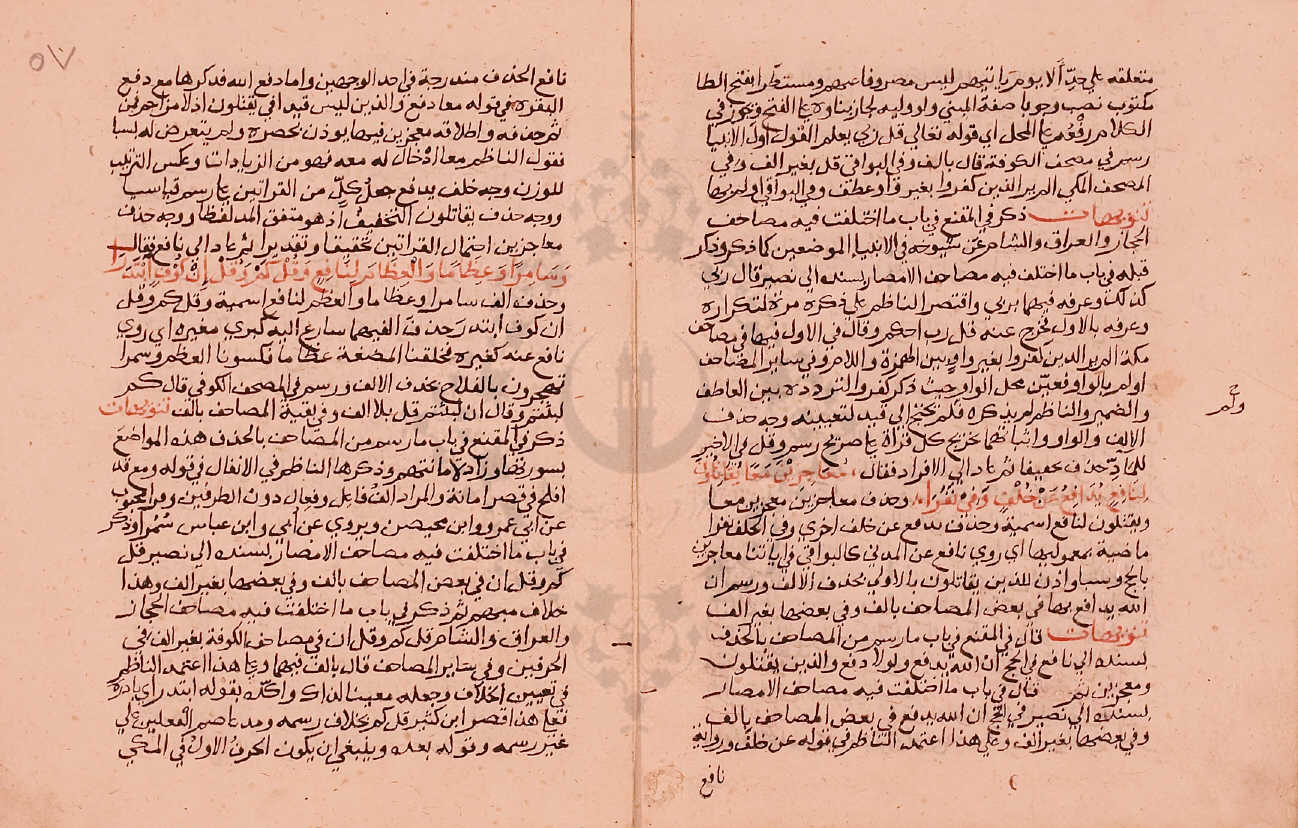 متعلقه على حد ألا يوم يأتيهم ليس مصروفا عنهم ومستطرا بفتح الطا
مكتوب نصب وجوبا صفة المبني ولو وليه لجاز بناوه على الفتح ويجوز في
الكلام رفعه على المحل اي قوله تعالى قل ربي يعلم القول اول الانبيا
رسم في مصحف الكوفة قال بالف وفي البواقي قل بغير الف وفي
المصحف المكي الم ير الذين كفروا بغير واو عطف وفي البواقي اولم بها
تنويهات ذكر في المقنع في باب ما اختلفت فيه مصاحف
الحجاز والعراق والشام عن شيوخه في الانبيا الموضعين كما ذكر وذكر
قبله في باب ما اختلف فيه مصاحف الامصار بسنده الى نصير قال ربي
كذلك وعرفه فيهما بربي واقتصر الناظم على ذكره مرة لتكراره
وعرفه بالاول فخرج عنه قل رب احكم وقال في الاول فيها في مصاحف
مكة الم ير الذين كفروا بغير واو بين الهمزة واللام وفي ساير المصاحف
اولم بالواو فعين محل الواو حيث ذكر كفروا لتردده بين العاطف
والضمير والناظم لم يذكره فلم يحتج الى قيد لتعيينه وجه حذف
الالف والواو واثباتهما تخريج كل قراة على صريح رسم وقل في الاخير
حذف تخفيفا ثم عاد الى الافراد فقال معاجزين معا يقاتلون
لنافع يدافع عن خلف وفي نفرا وحذف معاجزين معجزين معا
ويقتلون لنافع اسمية وحذف يدفع عن خلف اخرى وفي الخلف نفرا
ماضية بمعموليها اي روى نافع عن المدني كالبواقي في اياتنا معاجزين
بالحج وسبا واذن للذين يقاتلون بالاولى بحذف الالف ورسم ان
الله يدافع بها في بعض المصاحف بالف وفي بعضها بغير الف
تنويهات قال في المقنع في باب ما رسم من المصاحف بالحذف
بسنده الى نافع في الحج ان الله يدفع ولولا دفع والذين يقتلون
ومعجزين ثم قال في باب ما اختلفت فيه مصاحف الامصار
بسنده الى نصير في الحج ان الله يدفع في بعض المصاحف بالف
وفي بعضها بغير الف وعلى هذا اعتمد الناظم في قوله عن خلف ورواية
نافع
ولم
نافع الحذف مندرجة في احد الوجهين واما دفع الله فذكرها مع دفع
البقرة في قوله معا دفع والذين ليس قيدا في يقتلون اذ لا مزاحم في
ثم حذفه واطلاقه معجزين فيهما يوذن بحصره ولم يتعرض له لسبا
فقول الناظم معا ادخال له معه فهو من الزيادات وعكس الترتيب
للوزن وجه خلف يدفع جعل كل من القراتين على رسم قياسيا
ووجه حذف يقاتلون التخفيف اذ هو متفق المد لفظا ووجه حذف
معاجزين احتمال القراتين تحقيقا وتقديرا ثم عاد الى نافع فقال
وسامرا وعظاما والعظام لنافع وقل كم وقل ان كوف ابتدرا
وحذف الف سامرا وعظاما والعظم لنافع اسمية وقل كم وقل
ان كوف ابتدر حذف الفيهما سارع اليه كبرى مغيرة اي روى
نافع عنه كغيره فخلقنا المضغة عظاما فكسونا العظم وسمرا
تهجرون بالفلاح بحذف الالف ورسم في المصحف الكوفي قال كم
لبثتم وقال ان لبثتم قل بلا الف وفي بقية المصاحف بالف تنويهات
ذكر في المقنع في باب ما رسم من المصاحف بالحذف هذه المواضع
بسورتها وزاد لاماناتهم وذكرها الناظم في الانفال في قوله ومع قد
افلح في قصر امانة والمراد الف فاعل وفعال دون الطرفين وقرا المحبوب
عن ابي عمرو وابن محيصن ويروى عن ابي وابن عباس سمرا وذكر
في باب ما اختلفت فيه مصاحف الامصار بسنده الى نصير قل
كم وقل ان في بعض المصاحف بالف وفي بعضها بغير الف وهذا
خلاف مبهم ثم ذكر في باب ما اختلفت فيه مصاحف الحجاز
والعراق والشام قل كم وقل ان في مصاحف الكوفة بغير الف في
الحرفين وفي ساير المصاحف قال بالف فيهما وعلى هذا اعتمد الناظم
في تعيين الخلاف وجعله معينا لذاك واكده بقوله ابتدر اي بادره
فعلى هذا قصر ابن كثير قل كم بخلاف رسمه ومد عاصم الفعلين على
غير رسمه وقوله بعده وينبغي ان يكون الحرف الاول في المكي